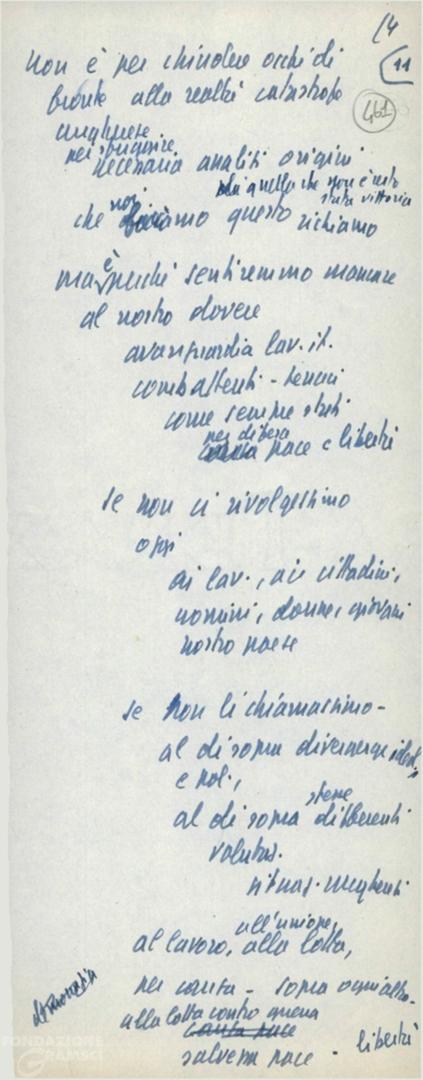 14
11
461
non è per chiudere occhi di
fronte alla realtà catastrofe
ungherese
per sfuggire
necessaria analisi origini
di quella che non è certo
stata vittoria
che noi facciamo questo richiamo
ma è perché sentiremmo mancare
al nostro dovere
avanguardia lav. it.
combattenti - tenaci
come sempre stati
per difesa
causa pace e libertà
se non ci rivolgessimo
oggi
ai lav., ai cittadini,
uomini, donne, giovani
nostro paese
se non li chiamassimo -
al di sopra divergenze ideol.
e pol.,
al di sopra stesse differenti
valutaz.
situaz. ungherese
all'unione,
al lavoro, alla lotta,
per causa - sopra ogni altra -
democrazia
alla lotta contro guerra
causa pace
salvezza pace - libertà
FONDAZIONE
GRAMSCI